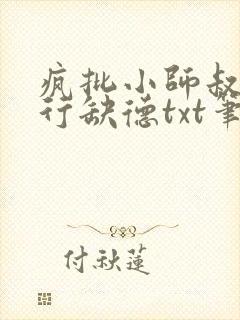 疯批小師叔
行缺德txt筆
付秋蓮